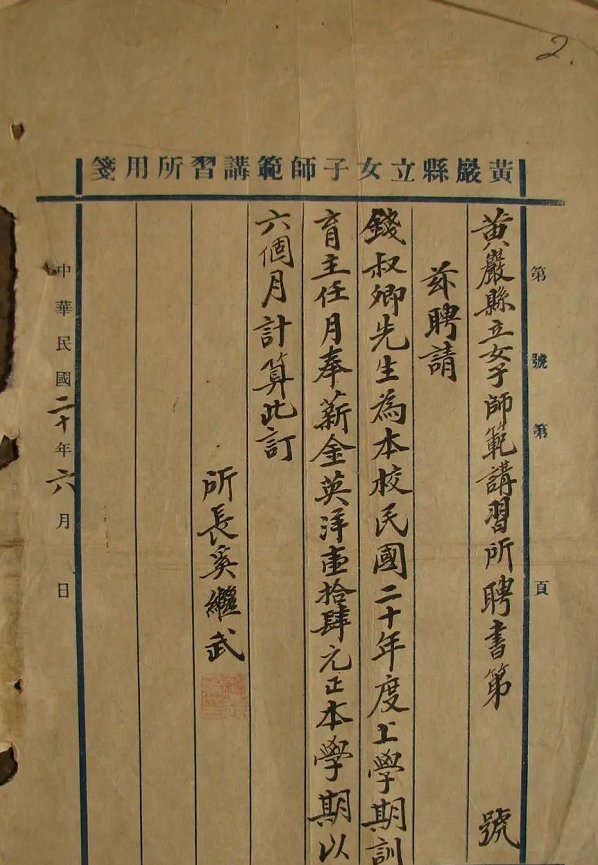 2.
黃巖縣立女子師範講習所用箋
第 號 第 頁
黃巖縣立女子師範講習所聘書第 號
茲聘請
錢叔卿先生為本校民國二十年度上學期訓
育主任月奉薪金英洋壹拾肆元正本學期以
六個月計算此訂
所長奚繼武
中華民國二十年六月 日